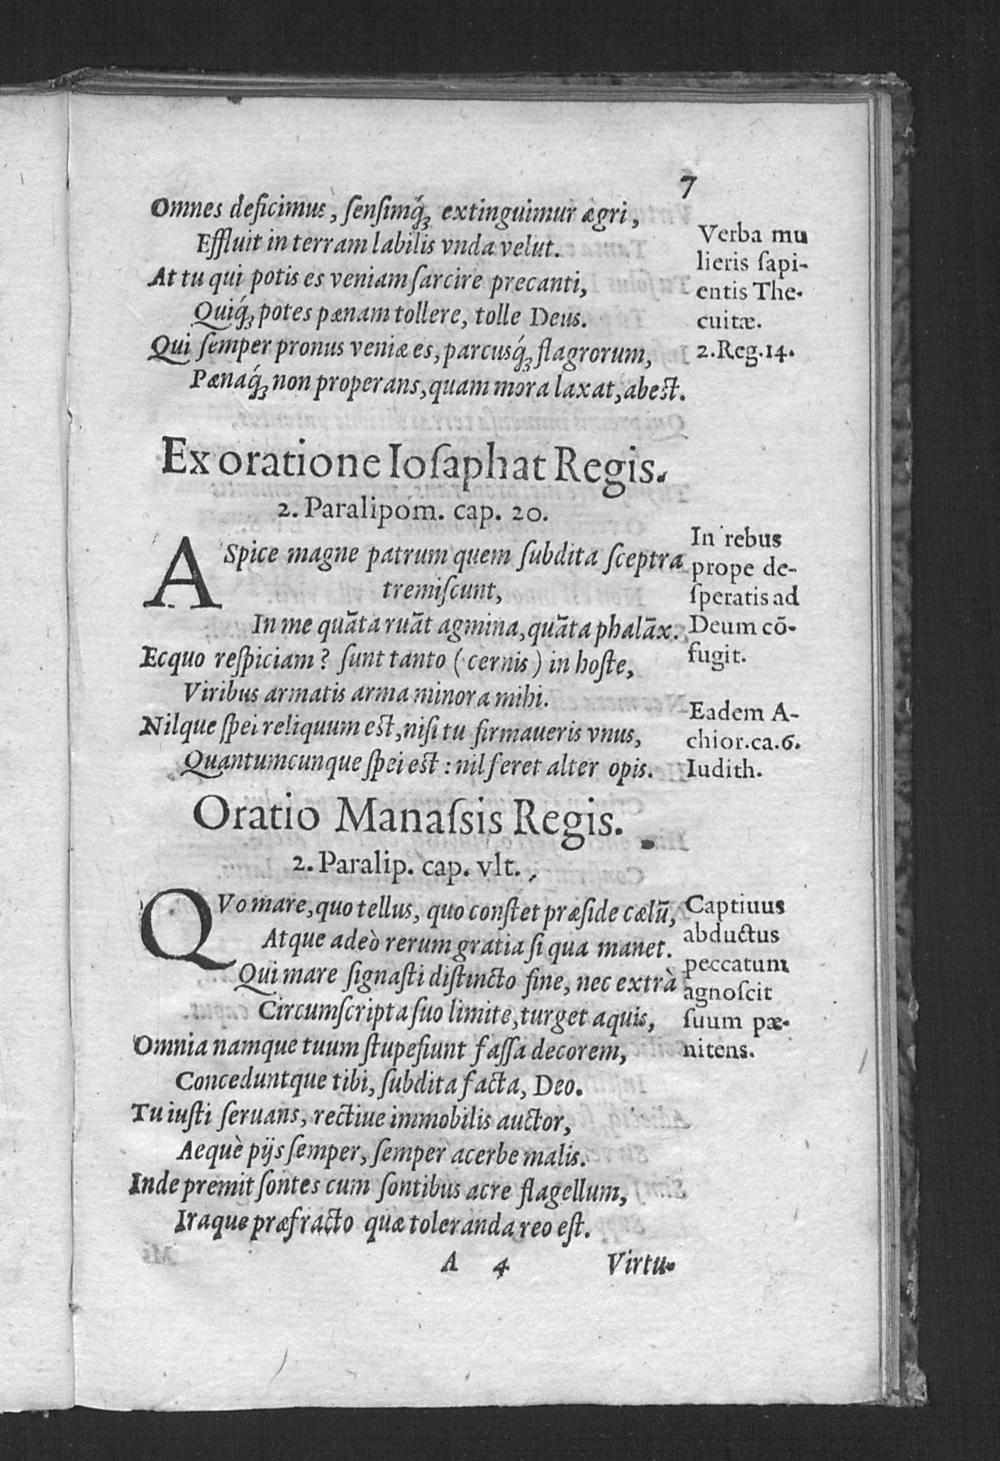 7
Omnes deficimus, ſenſimq́ꝫ extinguimur ægri,
Effluit in terram labilis vnda velut.
At tu qui potis es veniam ſarcire precanti,
Quiq́ꝫ potes pœnam tollere, tolle Deus.
Qui ſemper pronus veniæ es, parcusq́ꝫ flagrorum,
Pœnaq́ꝫ non properans, quam mora laxat, abest.
Verba mu
lieris ſapi-
entis The-
cuitæ.
2.Reg.14.
Ex oratione Ioſaphat Regis.
2. Paralipom. cap. 20.
ASpice magne patrum quem ſubdita ſceptra
tremiſcunt,
In me quãta ruãt agmina, quãta phalãx.
Ecquo reſpiciam? ſunt tanto (cernis) in hoſte,
Viribus armatis arma minora mihi.
Nilque ſpei reliquum est, niſi tu firmaueris vnus,
Quantumcunque ſpei est: nil feret alter opis.
In rebus
prope de-
ſperatis ad
Deum cõ-
fugit.
Eadem A-
chior.ca.6.
Iudith.
Oratio Manaſsis Regis.
2. Paralip. cap. vlt.
QVo mare, quo tellus, quo conſtet præſide cælũ,
Atque adeò rerum gratia ſi qua manet.
Qui mare ſignaſti diſtincto fine, nec extrà
Circumſcripta ſuo limite, turget aquis,
Omnia namque tuum ſtupefiunt faſſa decorem,
Conceduntque tibi, ſubdita facta, Deo.
Tu iuſti ſeruans, rectiue immobilis auctor,
Aequè pijs ſemper, ſemper acerbe malis.
Inde premit ſontes cum ſontibus acre flagellum,
Iraque præfracto quæ toleranda reo eſt.
Captiuus
abductus
peccatum
agnoſcit
ſuum pœ-
nitens.
A 4 Virtu-